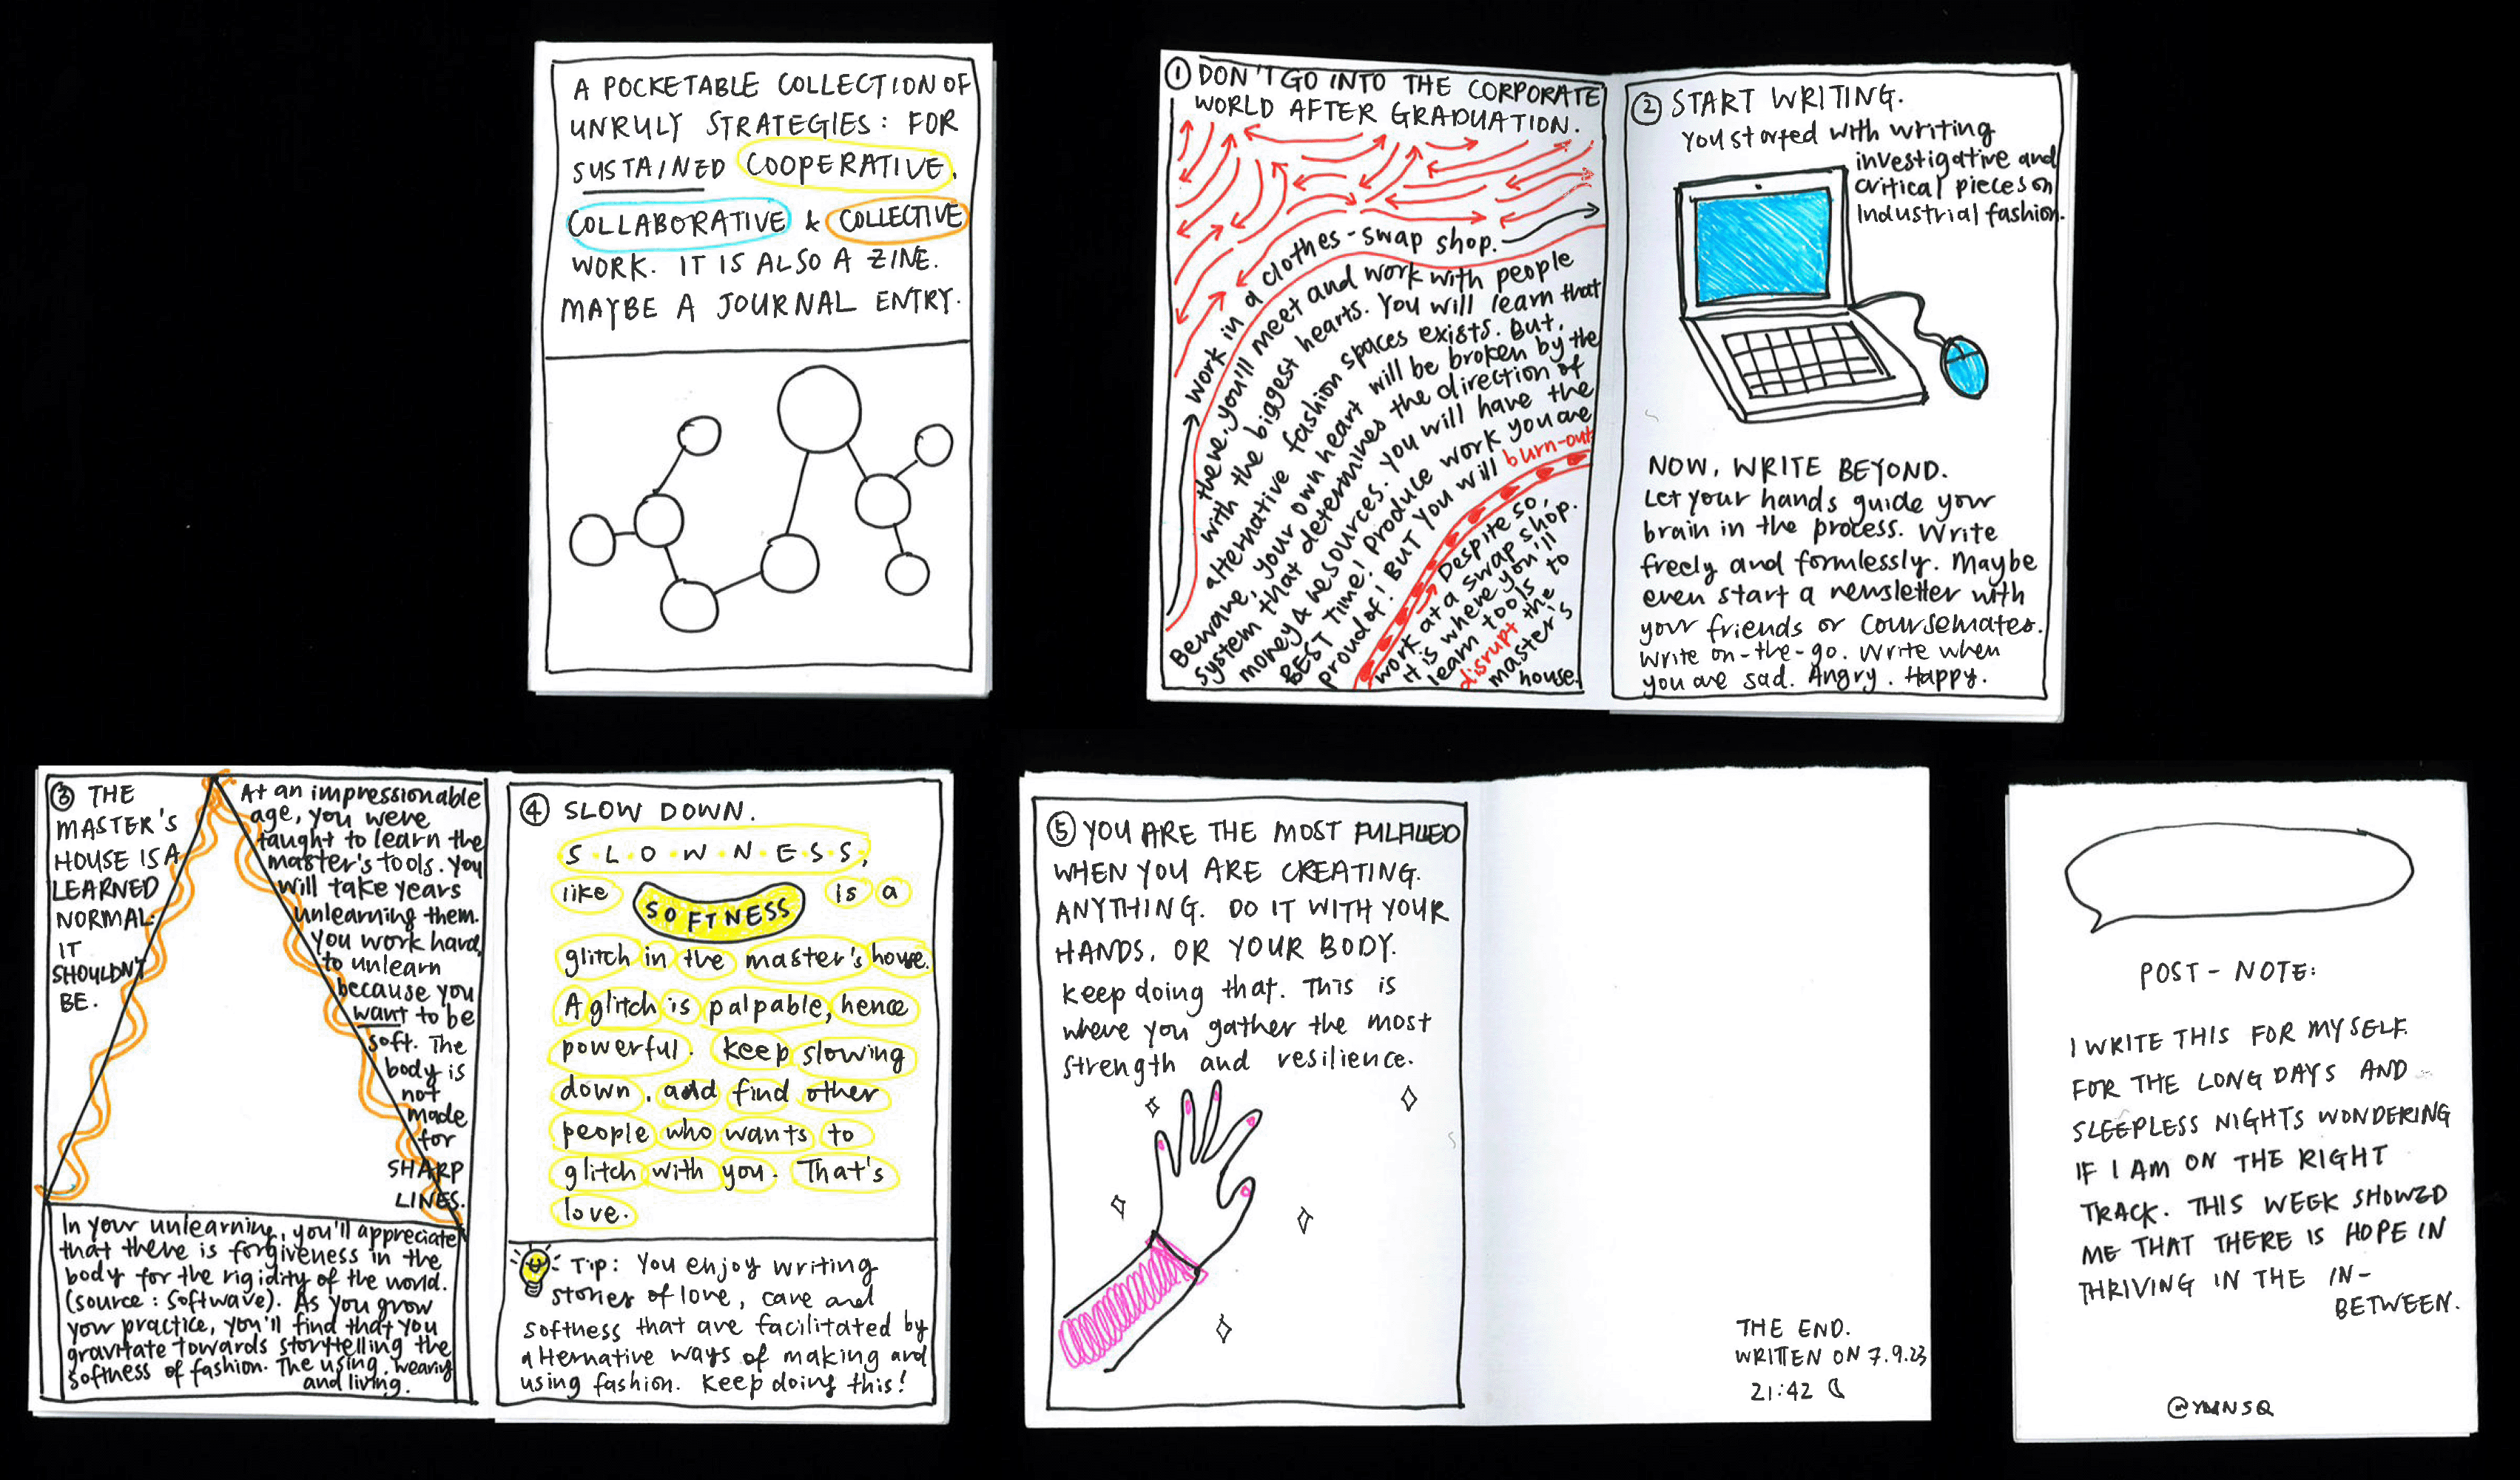 A POCKETABLE COLLECTION OF
UNRULY STRATEGIES: FOR
SUSTAINED COOPERATIVE,
COLLABORATIVE & COLLECTIVE
WORK. IT IS ALSO A ZINE.
MAYBE A JOURNAL ENTRY.
① DON'T GO INTO THE CORPORATE
WORLD AFTER GRADUATION.
Work in a clothes-swap shop.
there. you'll meet and work with people
with the biggest hearts. You will learn that
alternative fashion spaces exists. But,
Beware, your own heart will be broken by the
system that determines the direction of
money & resources. You will have the
BEST TIME! Produce work you are
proud of! BUT you will burn-out
Despite so,
work at a swap shop.
It is where you'll
learn tools to
disrupt the
master's
house.
② START WRITING.
You started with writing
investigative and
critical pieces on
Industrial fashion.
NOW, WRITE BEYOND.
Let your hands guide your
brain in the process. Write
freely and formlessly. Maybe
even start a newsletter with
your friends or coursemates.
Write on-the-go. Write when
you are sad. Angry. Happy.
③ THE
MASTER'S
HOUSE IS A
LEARNED
NORMAL.
IT
SHOULDN'T
BE.
At an impressionable
age, you were
taught to learn the
master's tools. You
will take years
unlearning them.
You work hard
to unlearn
because you
want to be
soft. The
body is
not
made
for
SHARP
LINES.
In your unlearning, you'll appreciate
that there is forgiveness in the
body for the rigidity of the world.
(source: Softwave). As you grow
your practice, you'll find that you
gravitate towards storytelling the
softness of fashion. The using, wearing
and living.
④ SLOW DOWN.
S.L.O.W.N.E.S.S,
like SOFTNESS is a
glitch in the master's house.
A glitch is palpable, hence
powerful. Keep slowing
down, and find other
people who wants to
glitch with you. That's
love.
Tip: You enjoy writing
stories of love, care and
softness that are facilitated by
alternative ways of making and
using fashion. Keep doing this!
⑤ YOU ARE THE MOST FULFILLED
WHEN YOU ARE CREATING.
ANYTHING. DO IT WITH YOUR
HANDS, OR YOUR BODY.
Keep doing that. This is
where you gather the most
strength and resilience.
THE END.
WRITTEN ON 7.9.23
21:42
POST-NOTE:
I WRITE THIS FOR MYSELF.
FOR THE LONG DAYS AND
SLEEPLESS NIGHTS WONDERING
IF I AM ON THE RIGHT
TRACK. THIS WEEK SHOWED
ME THAT THERE IS HOPE IN
THRIVING IN THE IN-
BETWEEN.